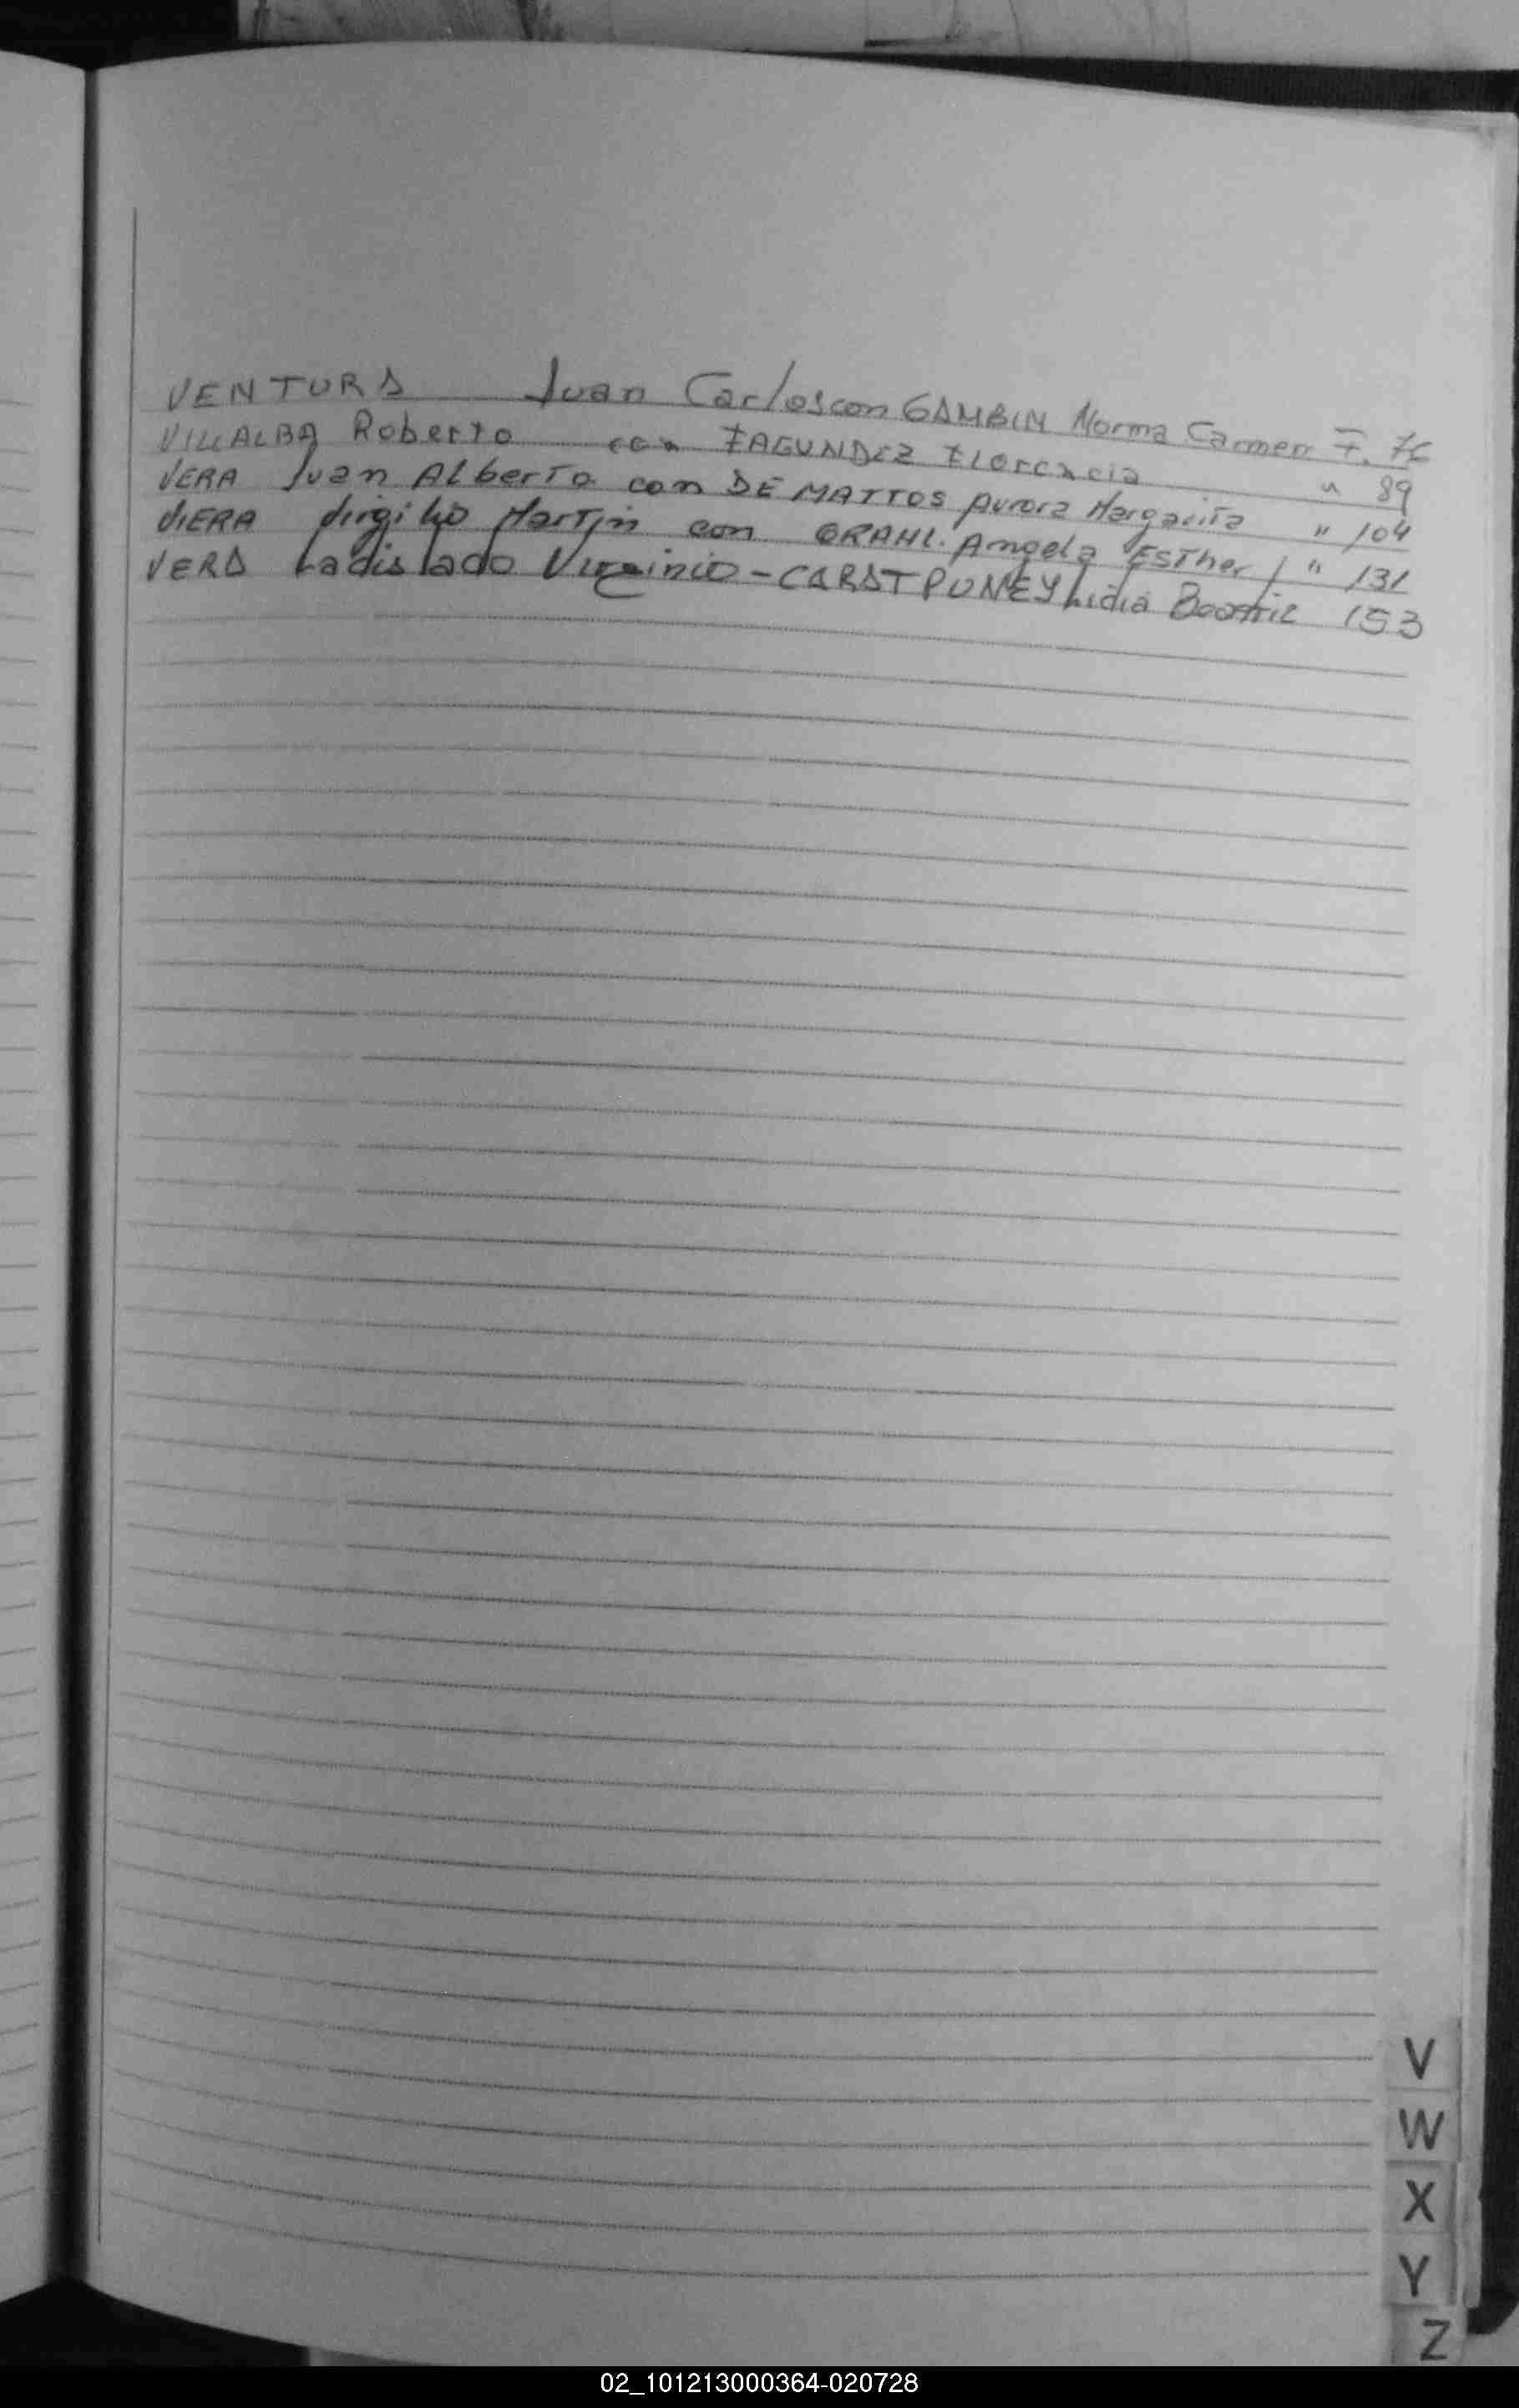 VENTURA Juan Carlos con GAMBIN Norma Carmen F. 76
VILLALBA Roberto con FAGUNDEZ Florencia " 89
VERA Juan Alberto con DE MATTOS Aurora Margarita " 104
VIERA Virgilio Martin con GRAHL. Angela Esther / " 131
VERA Ladislado Virginio - Lidia Beatriz 153
V
W
X
Y
Z
02_101213000364-020728